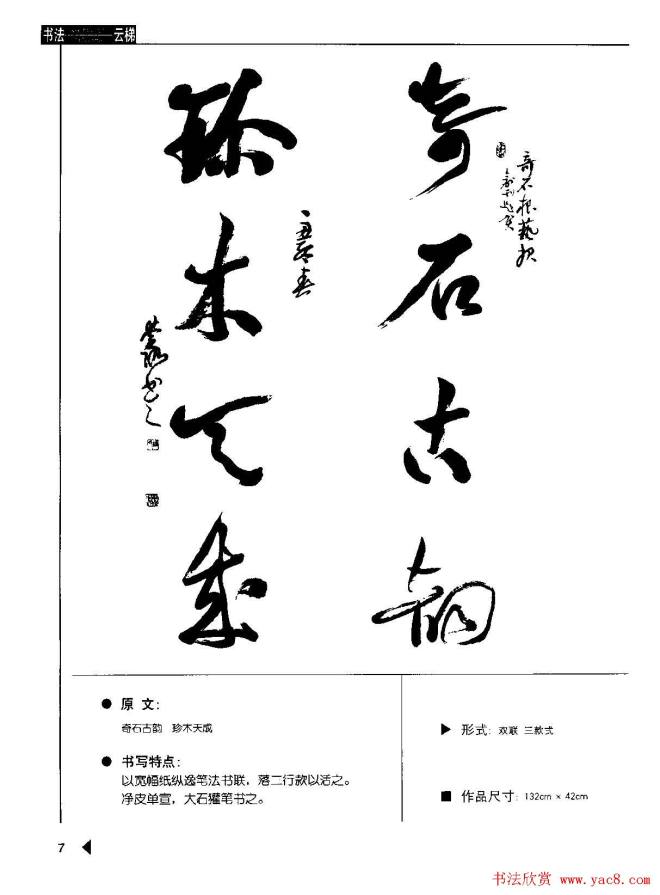 书法———云梯
奇石古韵
珍木天成
● 原 文:
奇石古韵 珍木天成
● 书写特点:
以宽幅纸纵逸笔法书联，落二行款以活之。
净皮单宣，大石獾笔书之。
▶ 形式: 双联 三款式
■ 作品尺寸: 132cm × 42cm
7 ◀
书法欣赏 www.yac8.com